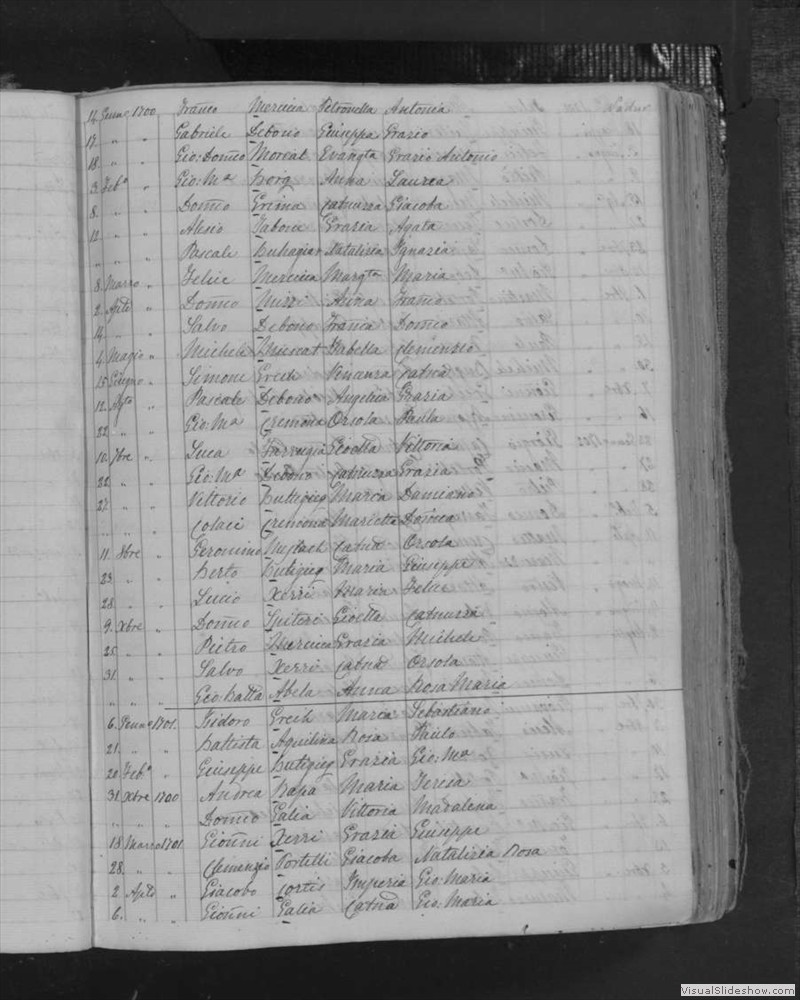 14 Genn: 1700 Franco Mercieca Petronella Antonia
17 " " Gabriele Debono Giuseppa Grazio
18 " " Gio: Domco Moreal Evangta Grazio Antonio
3 Feb° " Gio: Ma Borg Anna Laurea
8 " " Domco Erima Catnuzza Giacoba
12 " " Alesio Tabone Grazia Agata
" " " Pascale Buhagiar Natalizia Ignazia
8 Marzo " Felice Mercieca Margta Maria
2 Aple " Domco Mizzi Anna Franco
14 " " Salvo Debono Franca Domco
4 Magio " Michele Muscat Isbella Clemenzio
15 Giugno " Simone Grech Venenza Catna
12 Agto " Pascale Debono Angelica Grazia
22 " " Gio: Ma Cremona Orsola Paula
10 7bre " Luca Farrugia Gioella Vittoria
22 " " Gio: Ma Debono Catnuzza Grazia
27 " " Vittorio Buttigieg Maria Damiano
" " " Colaci Cremona Marietta Domca
11 8bre " Geronimo Mejlach Catna Orsola
23 " " Berto Buttigieg Maria Giuseppe
28 " " Lucio Xerri Maria Felice
9 Xbre " Domco Spiteri Gioella Catnuzza
25 " " Pietro Mercieca Grazia Michele
31 " " Salvo Xerri Catna Orsola
" " " Gio Batta Abela Anna Rosa Maria
6 Genne 1701 Isidoro Grech Maria Sebastiano
21 " " Battista Aquilina Rosa Paulo
20 Feb° " Giuseppe Buttigieg Grazia Gio: Ma
31 Xbre 1700 Andrea Rapa Maria Teresa
" " " Domco Galia Vittoria Madalena
18 Marzo 1701 Gionni Xerri Grazia Giuseppe
28 " " Clemenzio Portelli Giacoba Natalizia Rosa
2 Aple " Giacobo Cortis Imperia Gio: Maria
6 " " Gionni Galia Catna Gio: Maria
VisualSlideshow.com